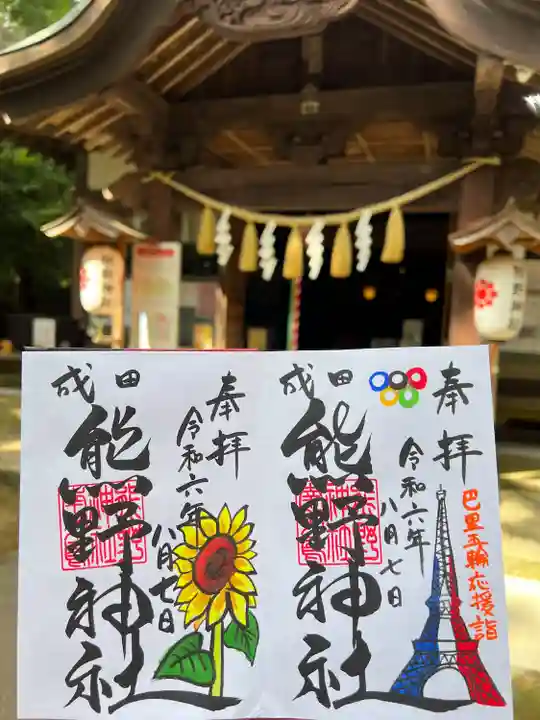 奉拝
令和六年
八月七日
成田
熊野神社
奉拝
令和六年
八月七日
成田
熊野神社
巴里五輪応援詣